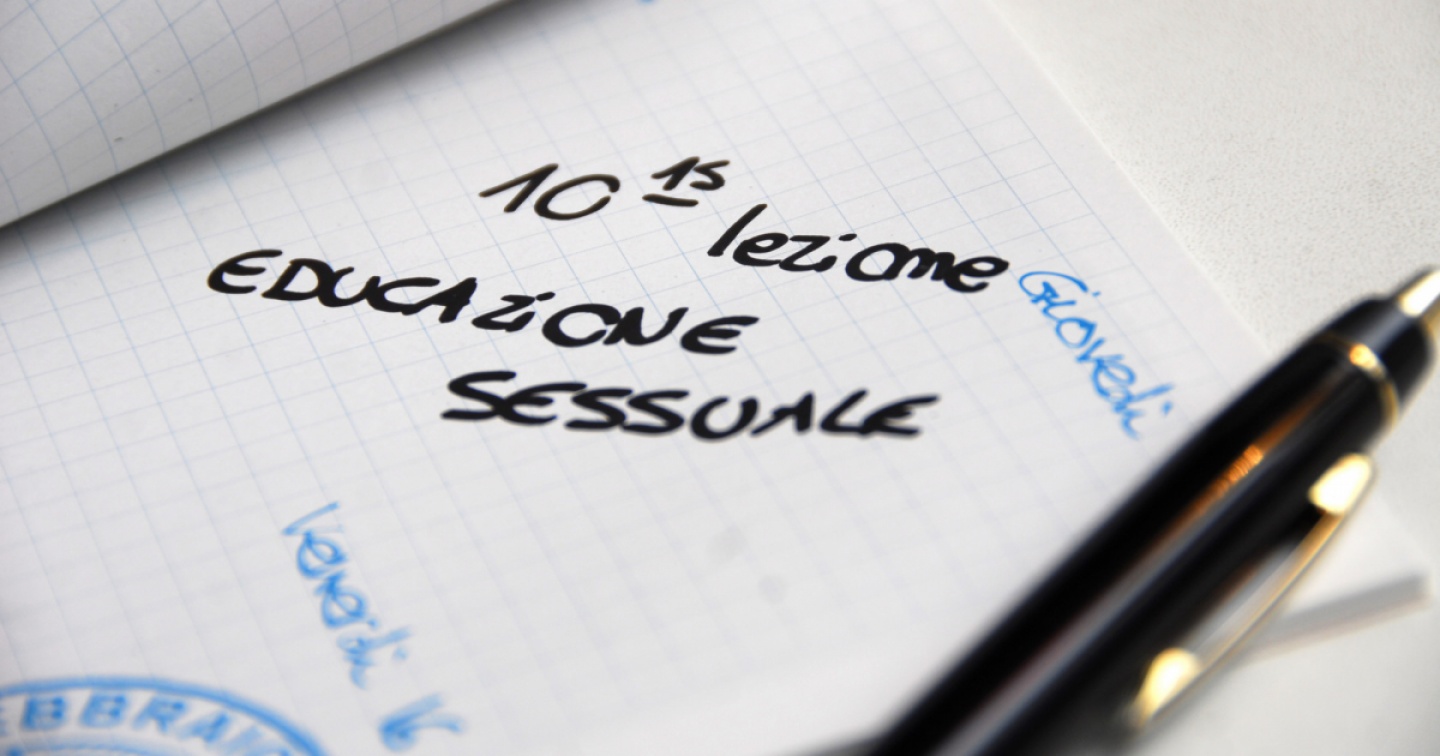 10 15
lezione
Giovedì
EDUCAZIONE
SESSUALE
Venerdì
EBBRAIO